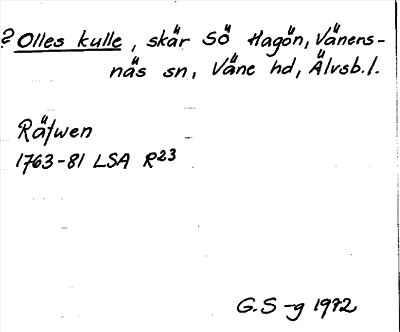 ? Olles kulle, skär SÖ Hagön, Vänens-
näs sn, Väne hd, Älvsb. l.
Räfwen
1763-81 LSA R23
G. S-g 1972